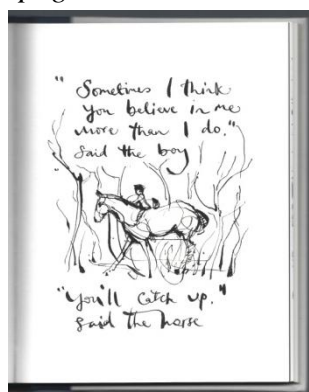 "Sometimes I think
you believe in me
more than I do."
said the boy
"You'll catch up."
said the horse